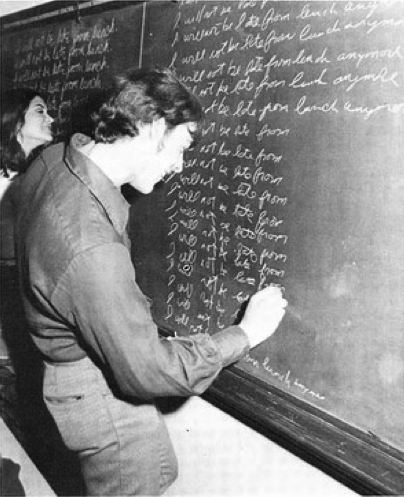 I will not be late from lunch.
I will not be late from lunch.
I will not be late from lunch.
will not be late from
I will not be late from lunch
I will not be late from lunch anymore
I will not be late from lunch anymore
I will not be late from lunch anymore
I will not be late from lunch anymore
not be late from lunch anymore
not be late from
will not be late from
will not be late from
I will not be late from
I will not be late from
I will not be late from
I will not be late from
I will not late from
I will not be from
I will not
I will not
lunch anymore